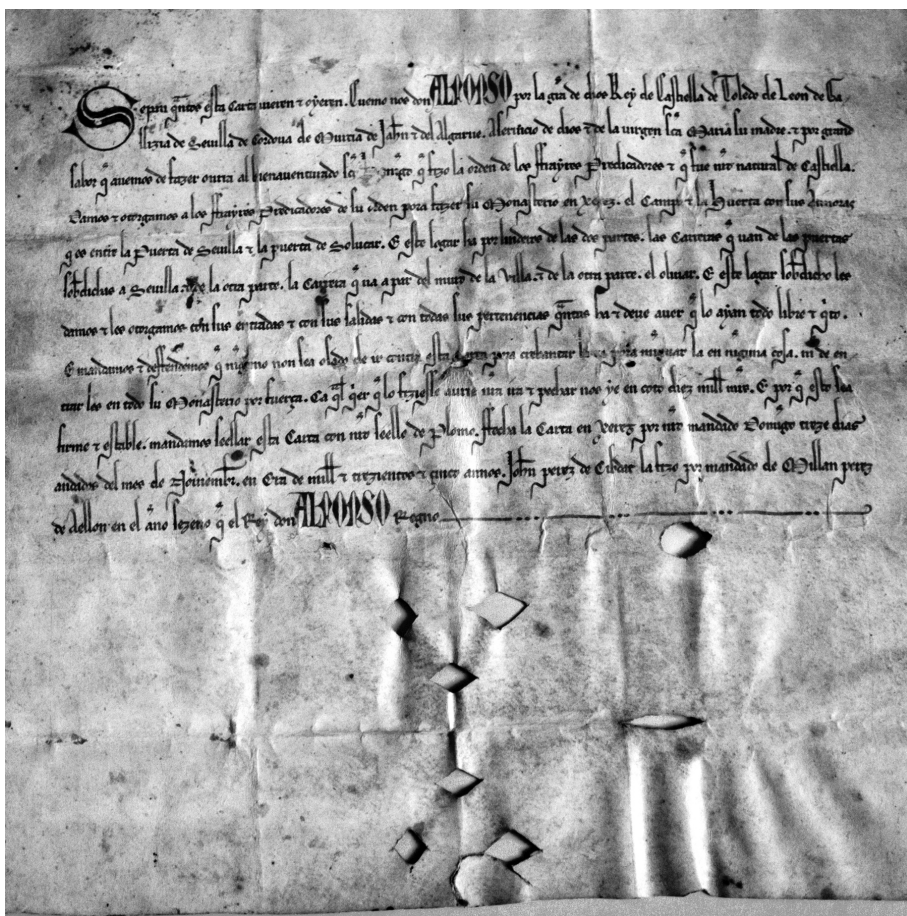 Sepan q̃ntos esta Carta uieren ⁊ oyeren. Cuemo nos don ALFONSO por la gr̃a de dios Rey de Castiella de Toledo de Leon de Ga
llizia de Seuilla de Cordoua de Murcia de Jahen ⁊ del Algarue. A seruicio de dios ⁊ de la uirgen sc̃a Maria su madre. ⁊ por grand
sabor q̃ auemos de fazer onrra al bienauenturado sc̃o Domingo q̃ fizo la orden de los ffrayres Predicadores ⁊ q̃ fue nr̃o natural de Castiella.
Damos ⁊ otorgamos a los ffrayres Predicadores de su orden pora fazer su Monasterio en Xerez. el Campo ⁊ la Huerta con sus annoras
q̃ es entre la Puerta de Seuilla ⁊ la puerta de Solucar. E este logar ha por linderos de las dos partes. las Carreras q̃ uan de las puertas
sobredichas a Seuilla. ⁊ de la otra parte. la Carrera q̃ ua a par del muro de la Villa. ⁊ de la otra parte. el oliuar. E este logar sobredicho les
damos ⁊ les otorgamos con sus entradas ⁊ con sus salidas ⁊ con todas sus pertenencias q̃ntas ha ⁊ deue auer q̃ lo ayan todo libre ⁊ q̃to.
E mandamos ⁊ deffendemos q̃ ninguno non sea osado de ir contra esta Carta pora crebantar la ni pora minguar la en ninguna cosa. ni de en
trar les en todo su Monasterio por fuerça. Ca q̃l q̃er q̃ lo fiziesse aurie nr̃a yra ⁊ pechar nos ye en coto diez mill mr̃s. E por q̃ esto sea
firme ⁊ estable. mandamos seellar esta Carta con nr̃o seello de Plomo. ffecha la Carta en Xerez por nr̃o mandado Domingo treze dias
andados del mes de Nouiembre. en Era de mill ⁊ trezientos ⁊ cinco annos. Johan perez de Cibdat la fizo por mandado de Millan perez
de Aellon en el an̄o sezeno q̃ el Rey don ALFONSO Regno